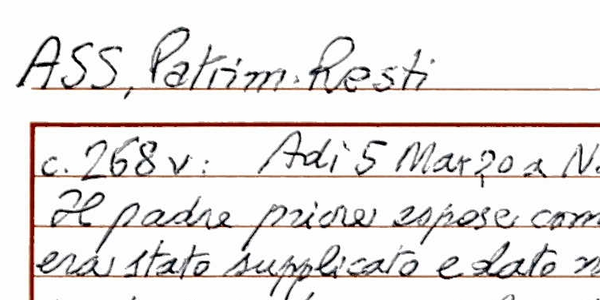 ASS, Patrim. Resti
c. 268 v: Adi 5 Marzo a
Il padre priore espose
era stato supplicato e dato